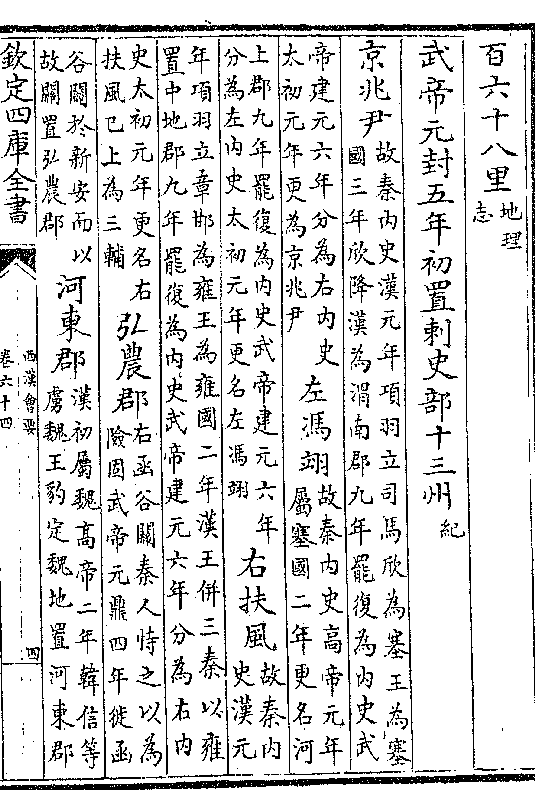 百六十八里地理
志
武帝元封五年初置刺史部十三州紀
京兆尹故秦内史漢元年項羽立司馬欣為塞王為塞
國三年欣降漢為渭南郡九年罷復為内史武
帝建元六年分為右内史
太初元年更為京兆尹
左馮翊故秦内史高帝元年
屬塞國二年更名河
上郡九年罷復為内史武帝建元六年
分為左内史太初元年更名左馮翊
右扶風故秦内
史漢元
年項羽立章邯為雍王為雍國二年漢王併三秦以雍
置中地郡九年罷復為内史武帝建元六年分為右内
史太初元年更名右
扶風已上為三輔
弘農郡右函谷關秦人恃之以為
險固武帝元鼎四年徙函
谷關於新安而以
故關置弘農郡
河東郡漢初屬魏高帝二年韓信等
虜魏王豹定魏地置河東郡
欽定四庫全書
西漢會要
卷六十四
四